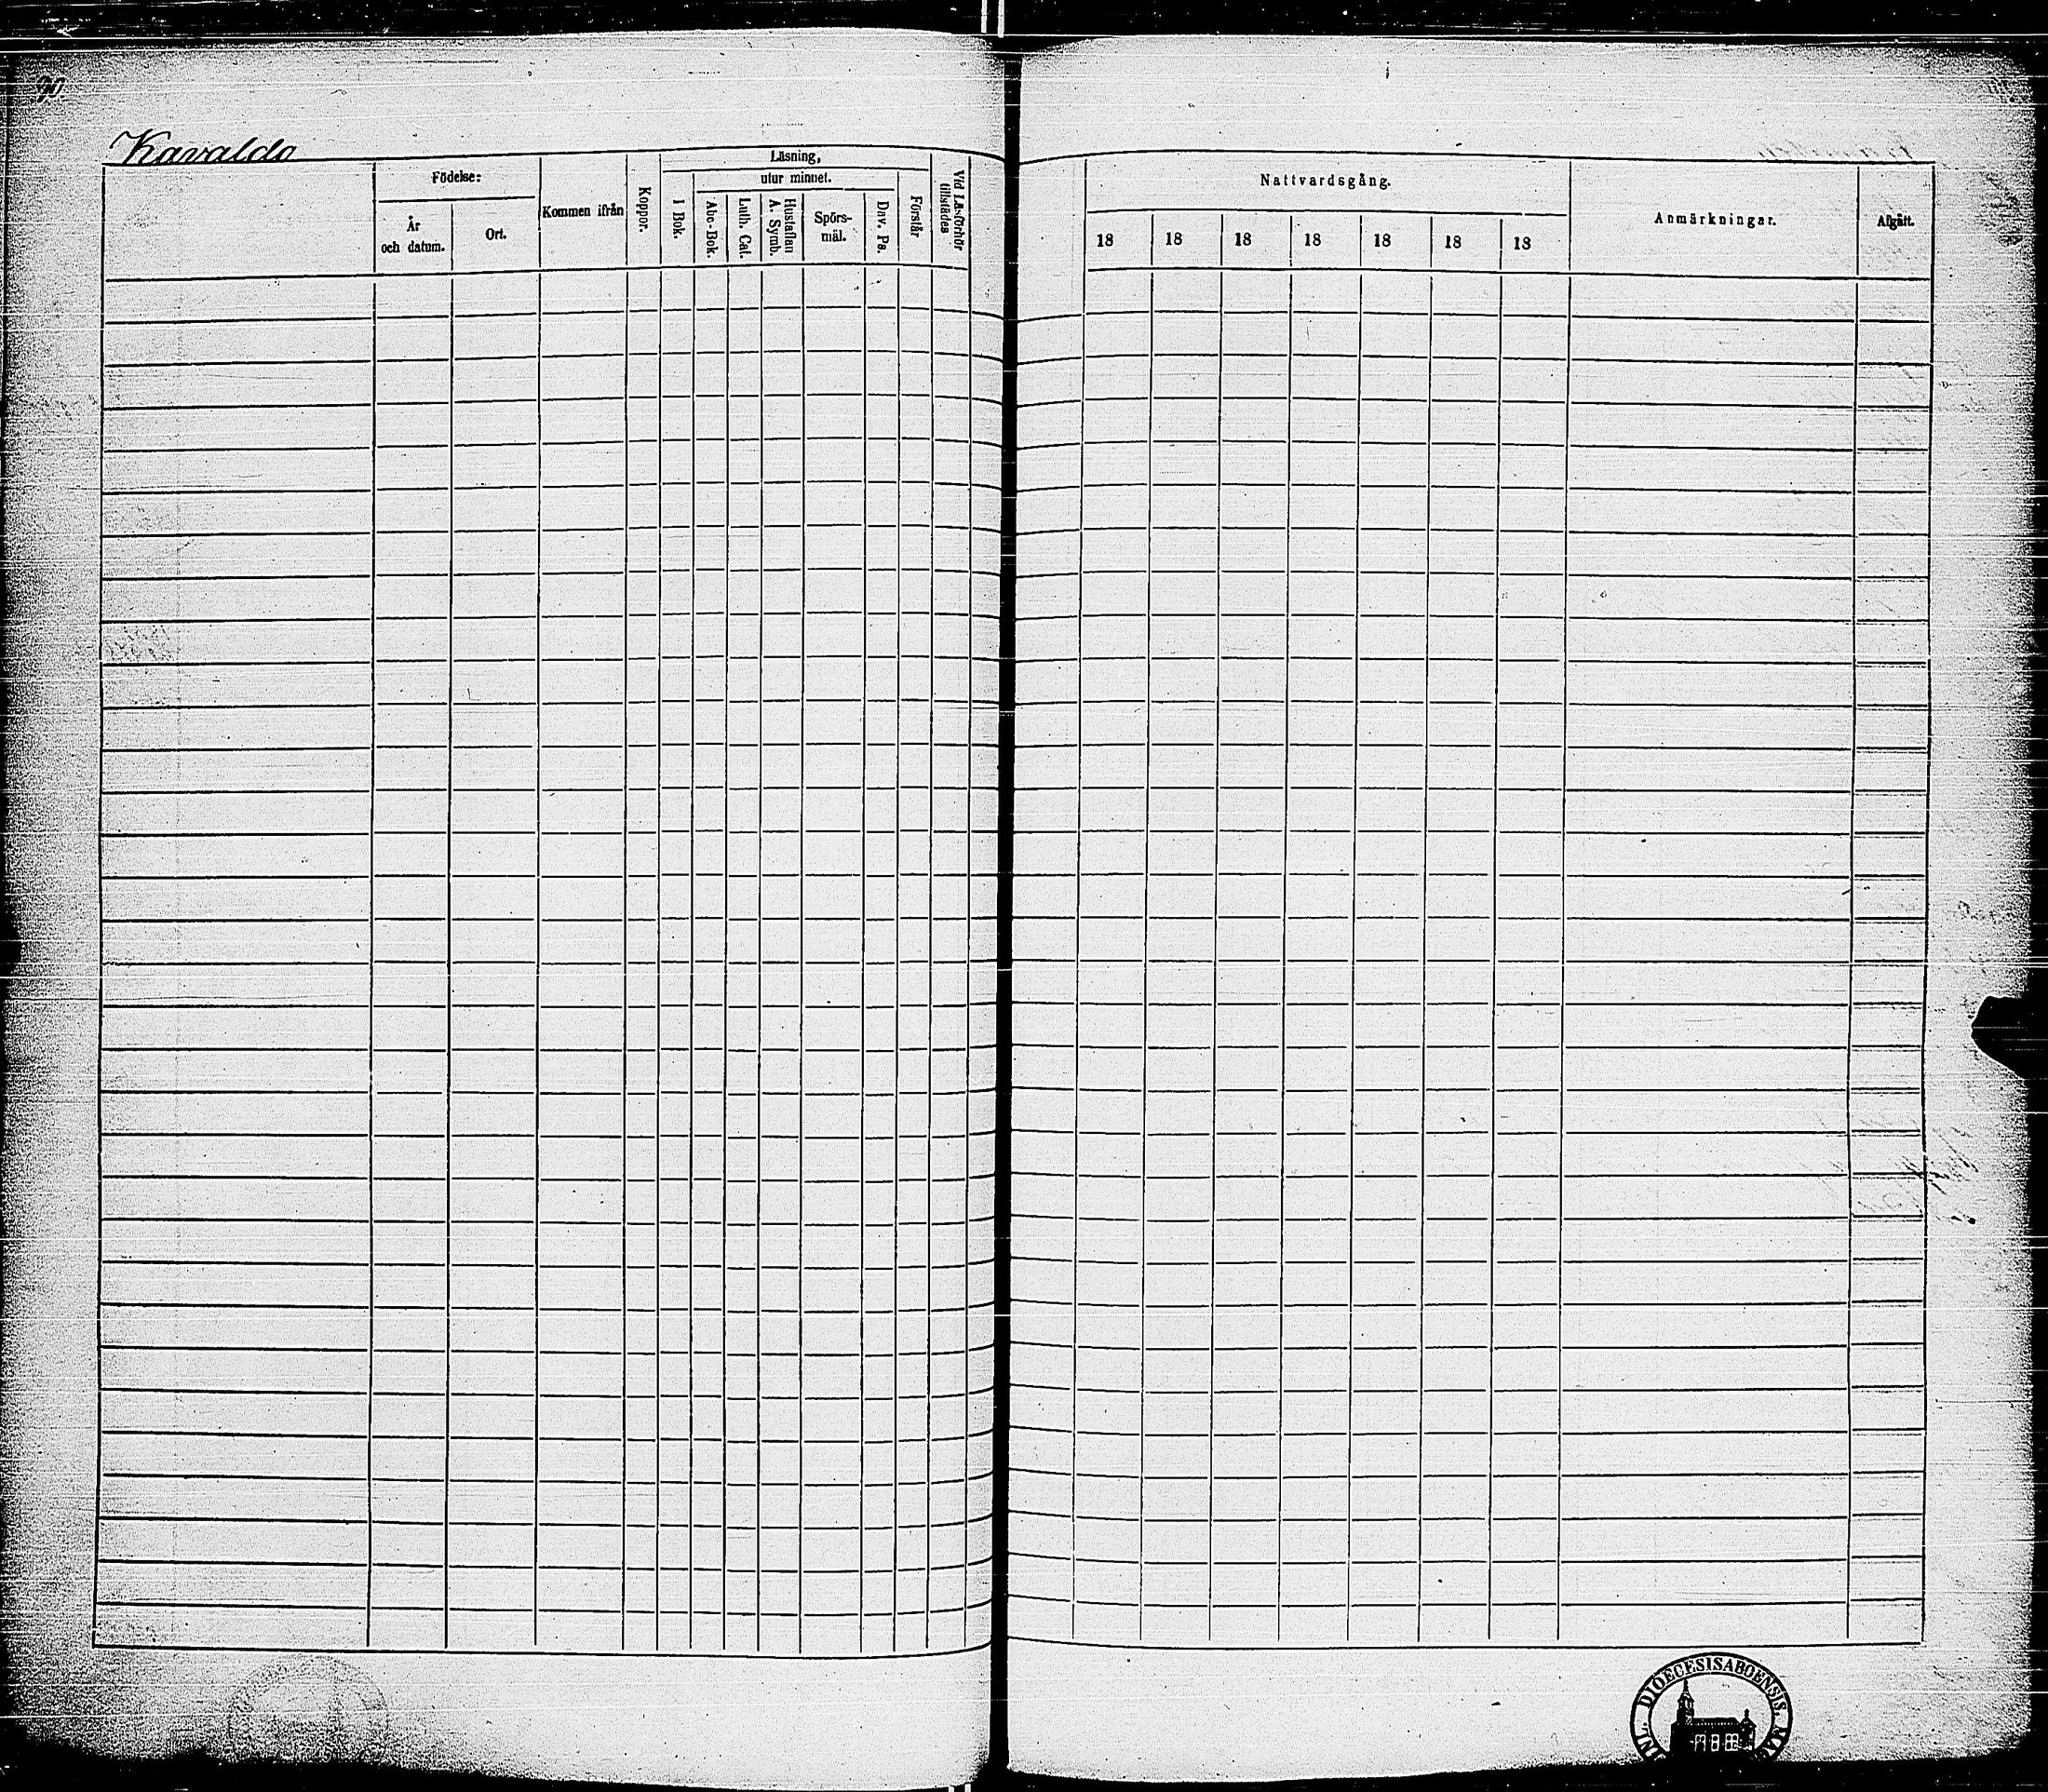 90.
Kavaldo
Födelse:
År och datum.
Ort.
Kommen ifrån
Koppor.
Läsning,
utur minnet.
I Bok.
Abc-Bok.
Luth. Cat.
Hustaflan A. Symb.
Spörs-
mål.
Dav. Ps.
Förstår
Vid Läsförhör tillstädes
Nattvardsgång.
18 18 18 18 18 18 18
Anmärkningar.
Afgått.
DIOECESIS ABOENSIS.